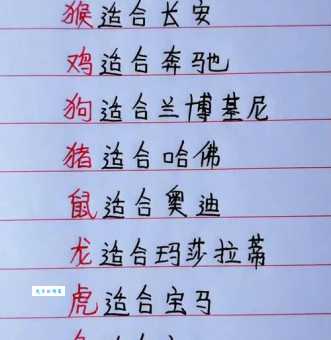 猴适合长安
鸡适合奔驰
狗适合兰博基尼
猪适合哈佛
鼠适合奥迪
龙适合玛莎拉蒂
虎适合宝马